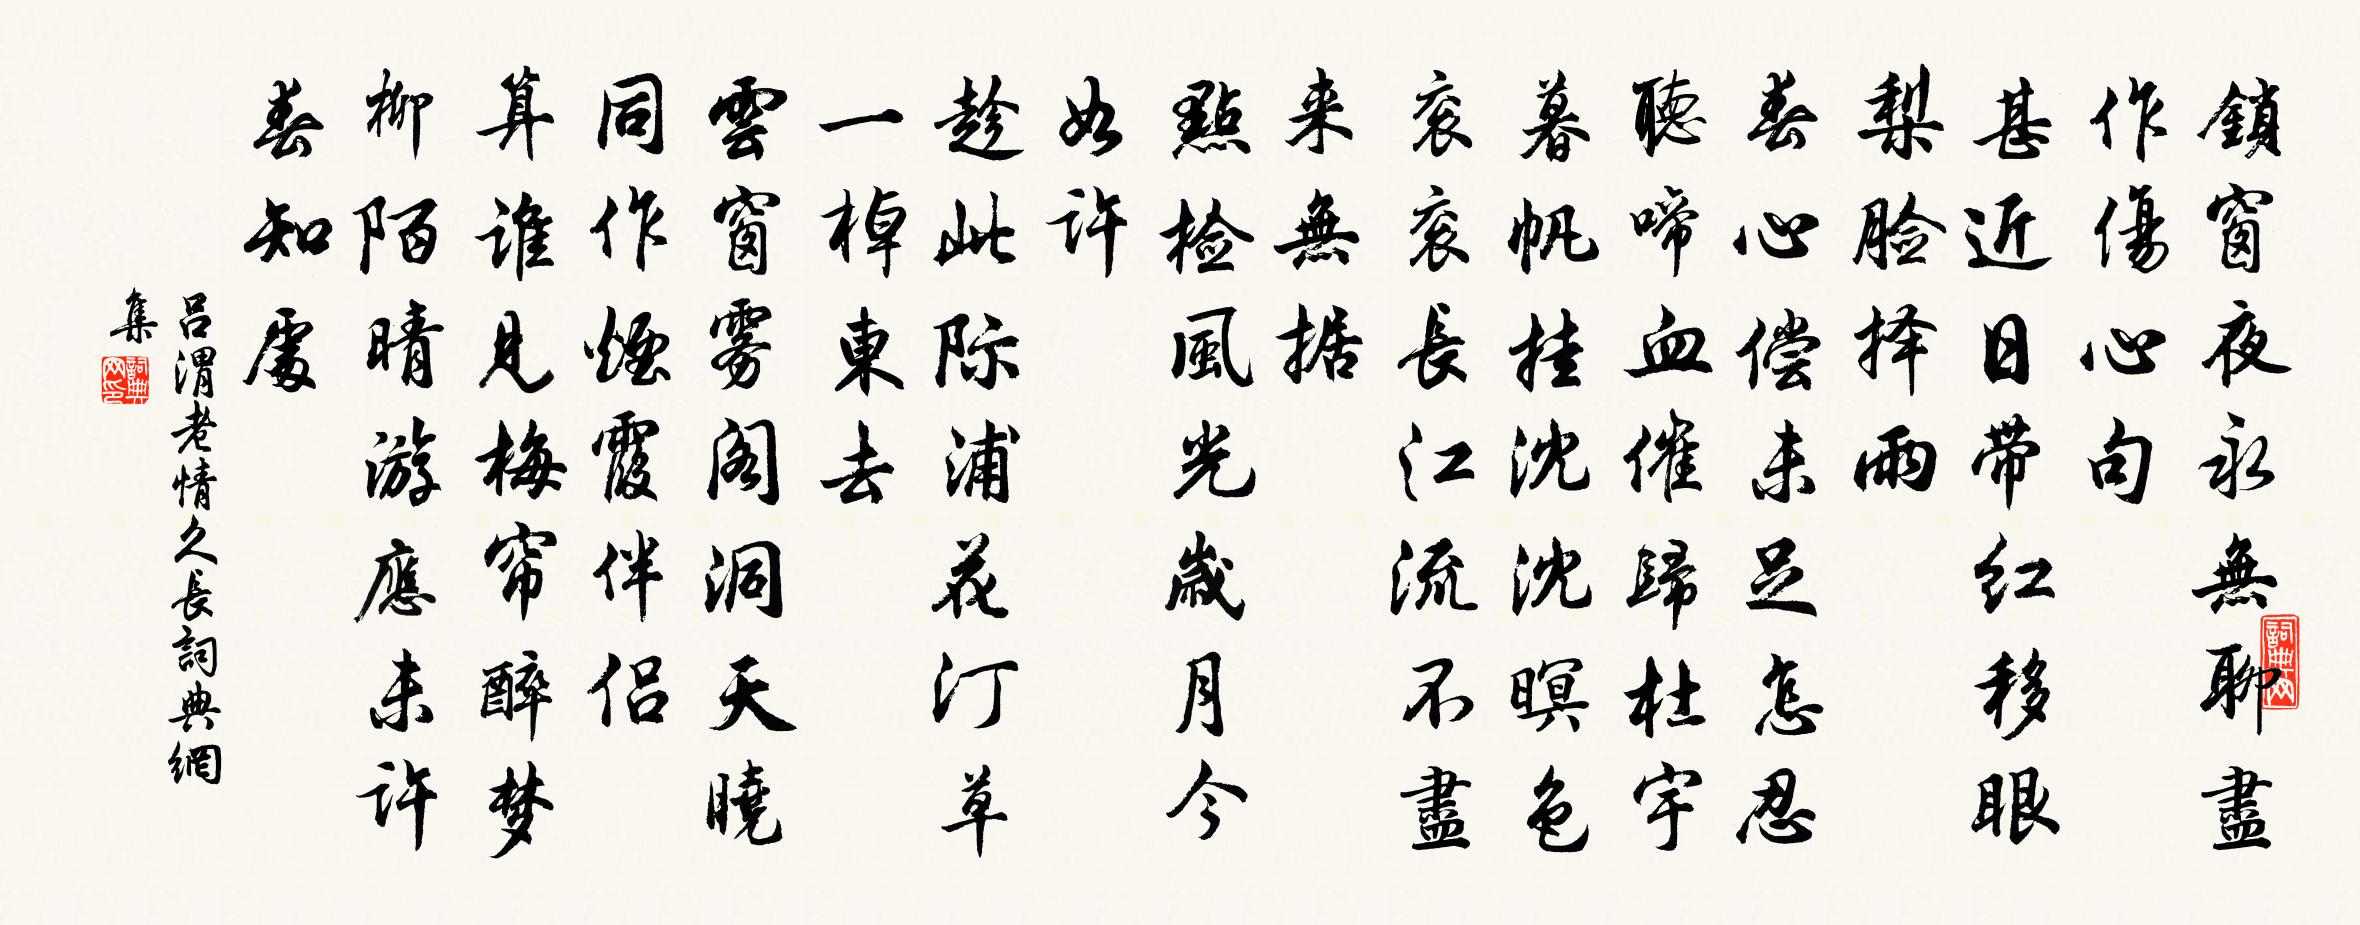 鎖窗夜永無聊盡
作傷心句
甚近日带红移眼
梨脸择雨
春心偿未足怎忍
聽啼血催歸杜宇
暮帆挂沈沈暝色
衮衮長江流不盡
来無据
點检風光歲月今
如许
趁此际浦花汀草
一棹東去
雲窗雾阁洞天曉
同作煙霞伴侣
算谁見梅帘醉梦
柳陌晴游應未许
春知處
吕渭老情久長詞典網
集
詞典網
詞典網印